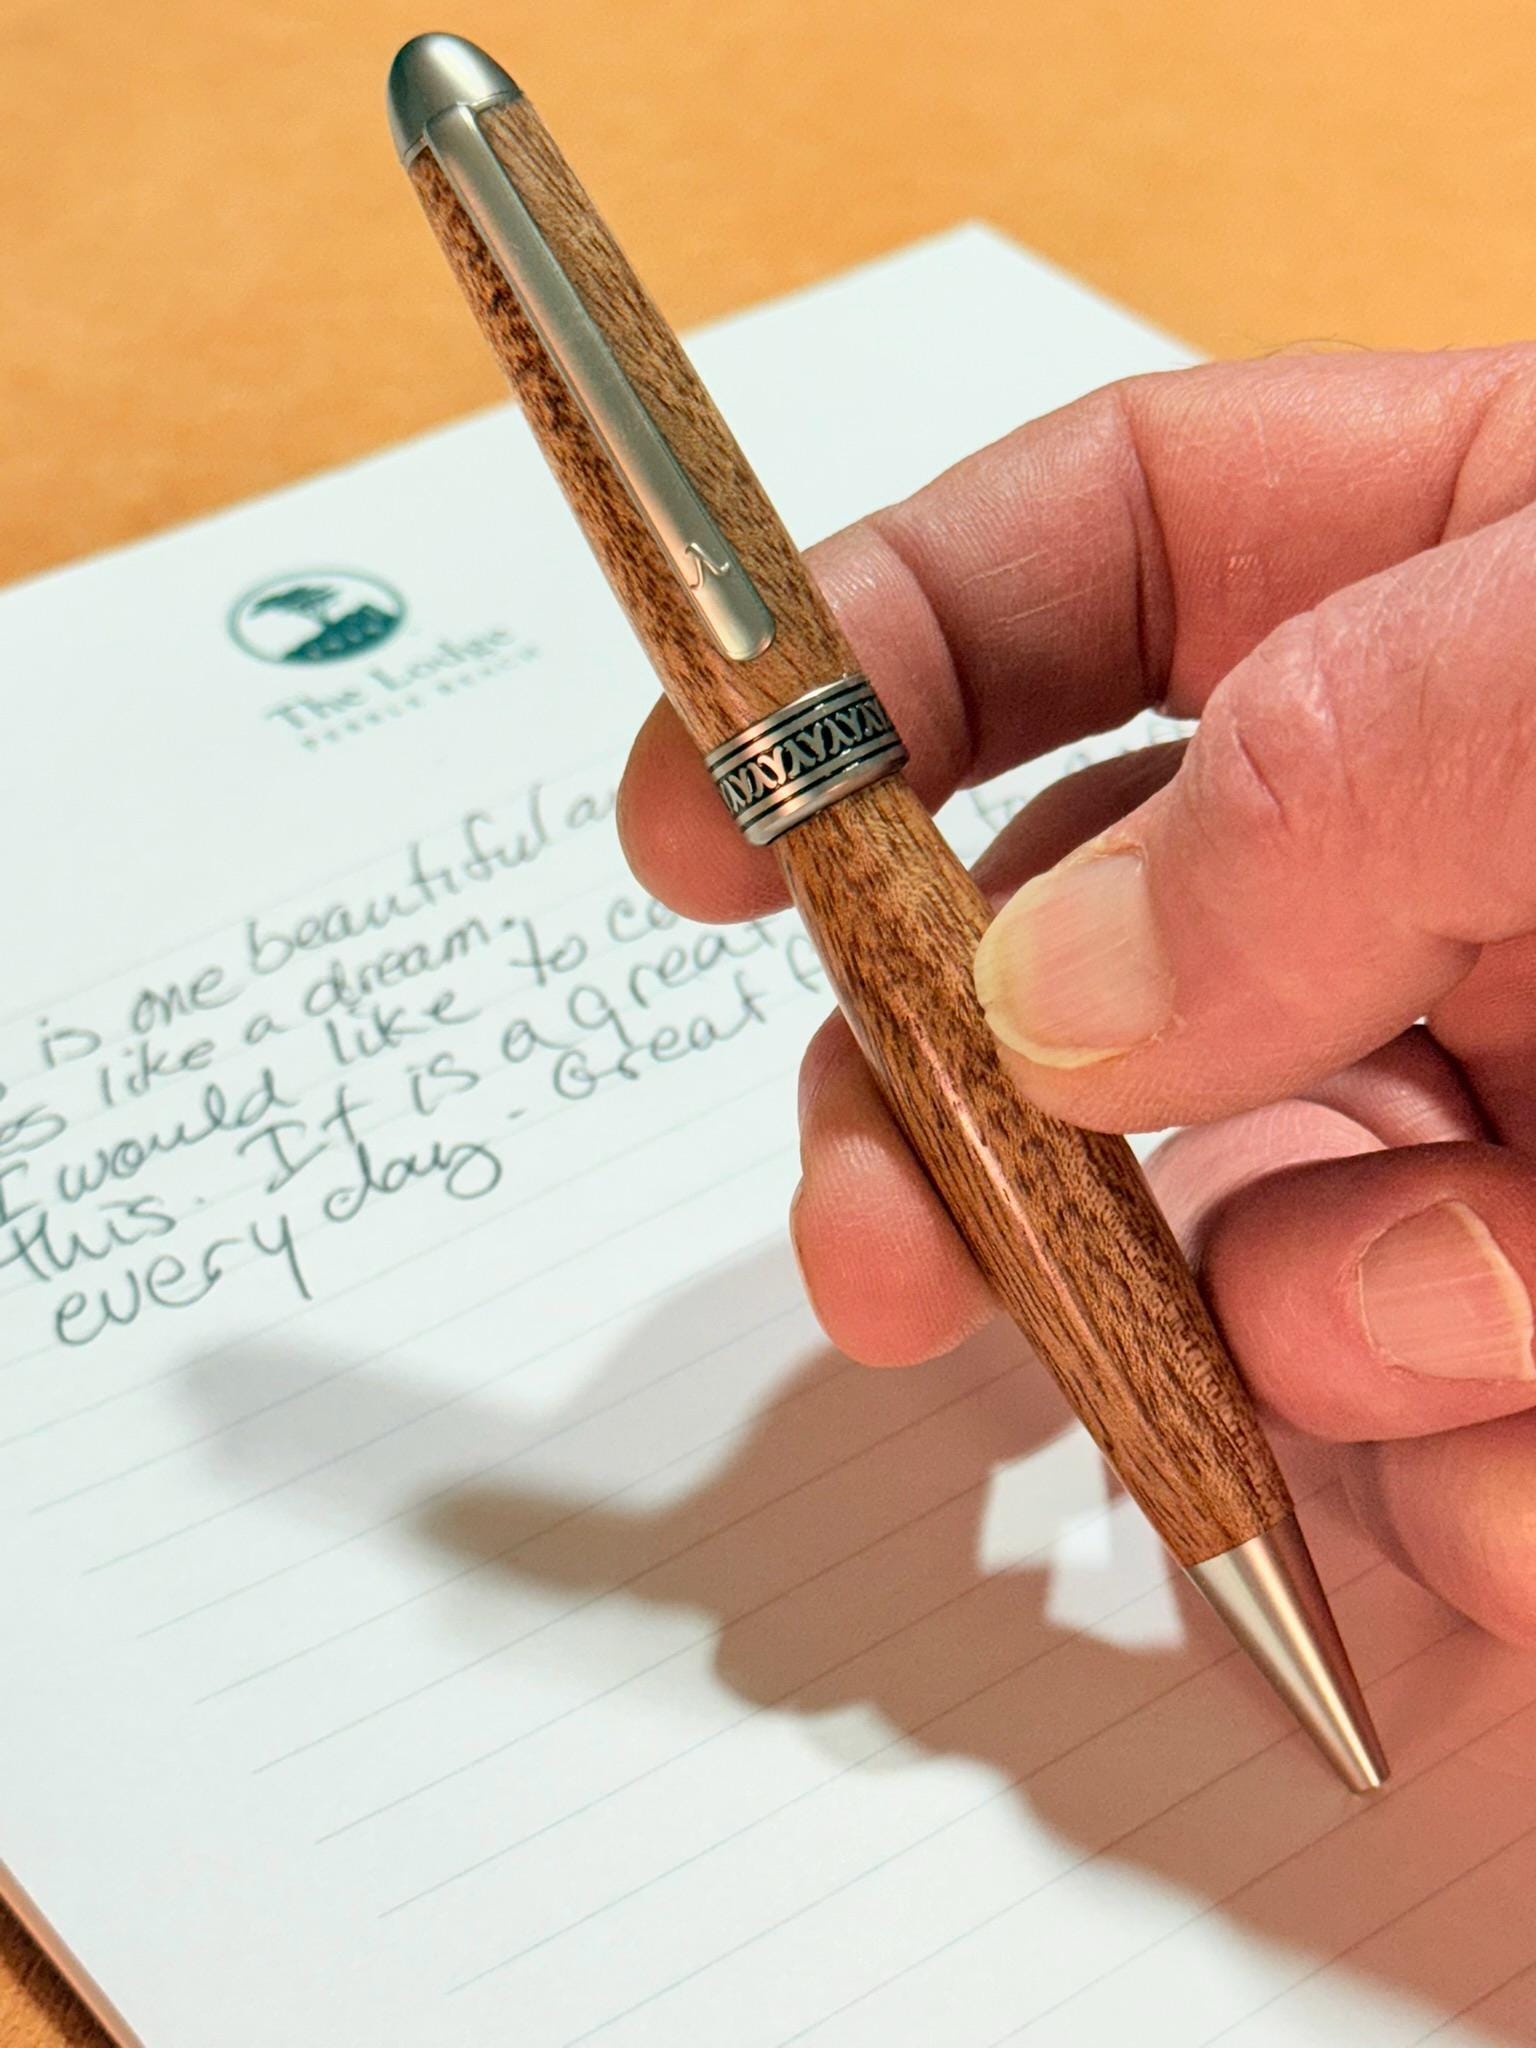 The Lodge
PEBBLE BEACH
is one beautiful
like a dream.
I would like to
this. It is a great
every day - Great